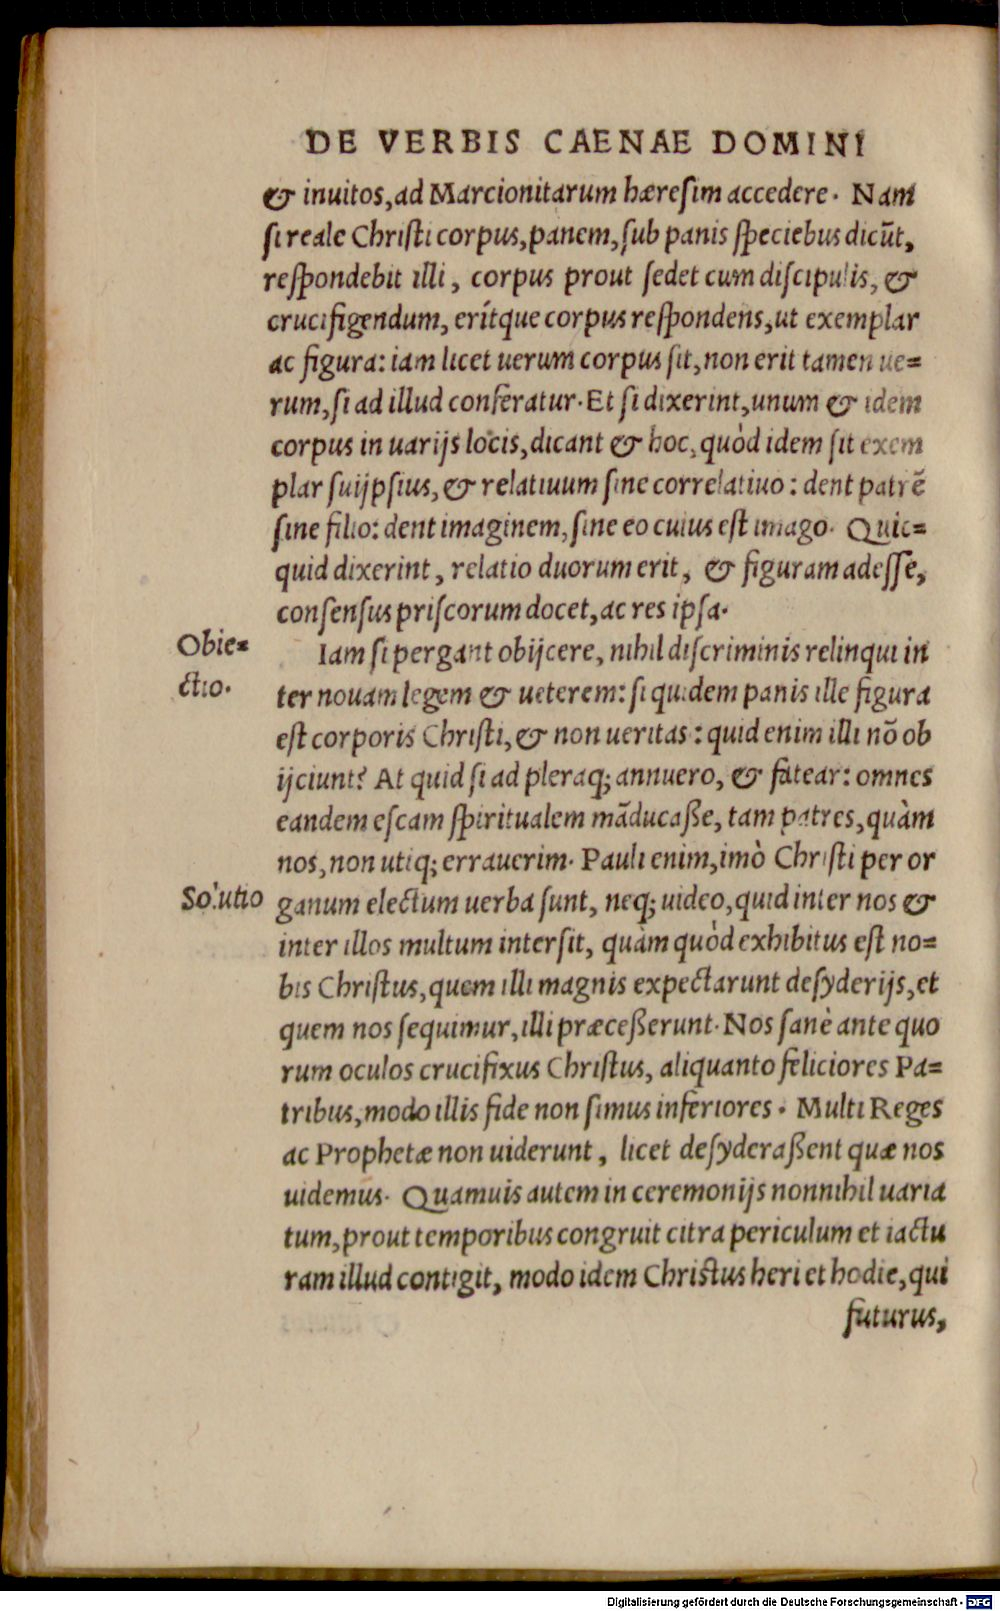 DE VERBIS CAENAE DOMINI
& inuitos, ad Marcionitarum hæresim accedere. Nam
si reale Christi corpus, panem, sub panis speciebus dicūt,
respondebit illi, corpus prout sedet cum discipulis, &
crucifigendum, erítque corpus respondens, ut exemplar
ac figura: iam licet uerum corpus sit, non erit tamen ue=
rum, si ad illud conferatur. Et si dixerint, unum & idem
corpus in uarijs locis, dicant & hoc, quòd idem sit exem
plar suijpsius, & relatiuum sine correlatiuo: dent patrē
sine filio: dent imaginem, sine eo cuius est imago. Quic=
quid dixerint, relatio duorum erit, & figuram adesse,
consensus priscorum docet, ac res ipsa.
Obie=
ctio.
Iam si pergant obijcere, nihil discriminis relinqui in
ter nouam legem & ueterem: si quidem panis ille figura
est corporis Christi, & non ueritas: quid enim illi nō ob
ijciunt? At quid si ad pleraq; annuero, & fatear: omnes
eandem escam spiritualem māducaße, tam patres, quàm
nos, non utiq; errauerim. Pauli enim, imò Christi per or
Solutio
ganum electum uerba sunt, neq; uideo, quid inter nos &
inter illos multum intersit, quàm quòd exhibitus est no=
bis Christus, quem illi magnis expectarunt desyderijs, et
quem nos sequimur, illi præceßerunt. Nos sanè ante quo
rum oculos crucifixus Christus, aliquanto feliciores Pa=
tribus, modo illis fide non simus inferiores. Multi Reges
ac Prophetæ non uiderunt, licet desyderaßent quæ nos
uidemus. Quamuis autem in ceremonijs nonnihil uaria
tum, prout temporibus congruit citra periculum et iactu
ram illud contigit, modo idem Christus heri et hodie, qui
futurus,
Digitalisierung gefördert durch die Deutsche Forschungsgemeinschaft - DFG